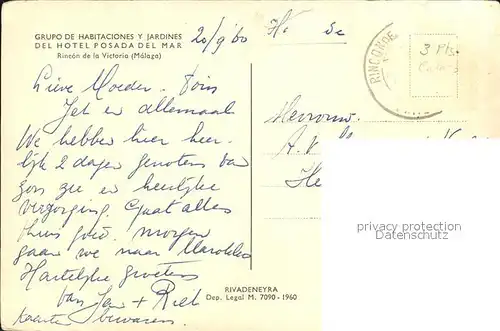 GRUPO DE HABITACIONES Y JARDINES
DEL HOTEL POSADA DEL MAR
Rincón de la Victoria (Málaga)
20/9 '60
3 Pts.
RINCON DE
Lieve Moeder.
allemaal
We hebben hier heer-
lijk 2 dagen genoten van
zon zee en heerlijke
verzorging. Gaat alles
thuis goed. morgen
gaan we naar Marokko
Hartelijke groeten
van Jan + Riet
kaarten bewaren.
Mevrouw.
A. V
He
privacy protection
VIADRINA©
RIVADENEYRA
Dep. Legal M. 7090 - 1960